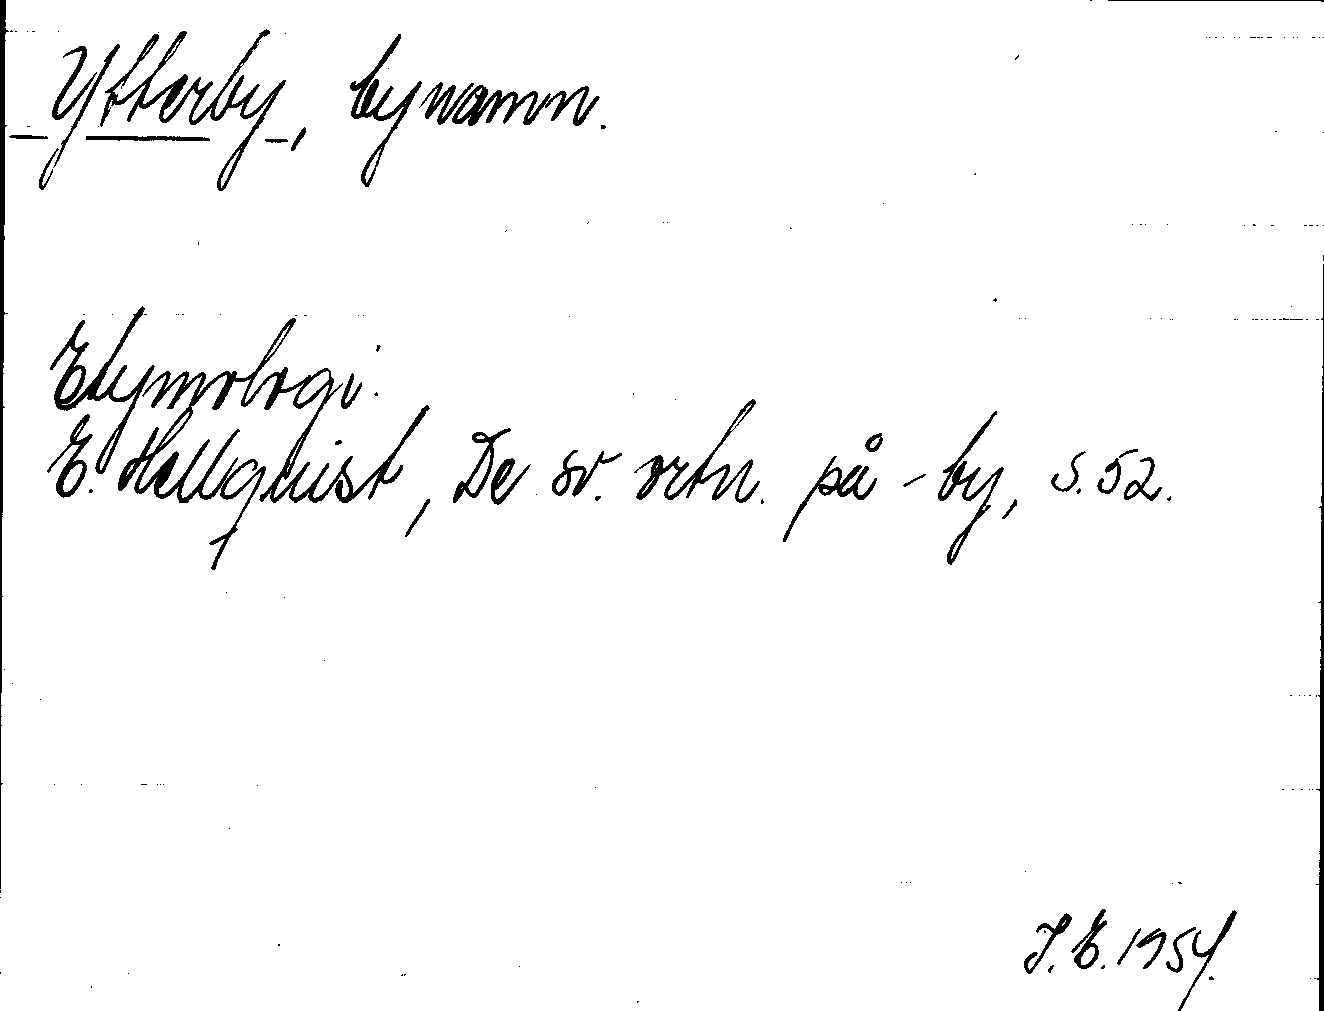 Ytterby, bynamn.
Etymologi.
E. Hellquist, De sv. ortn. på -by, s. 52.
I. E. 1954.